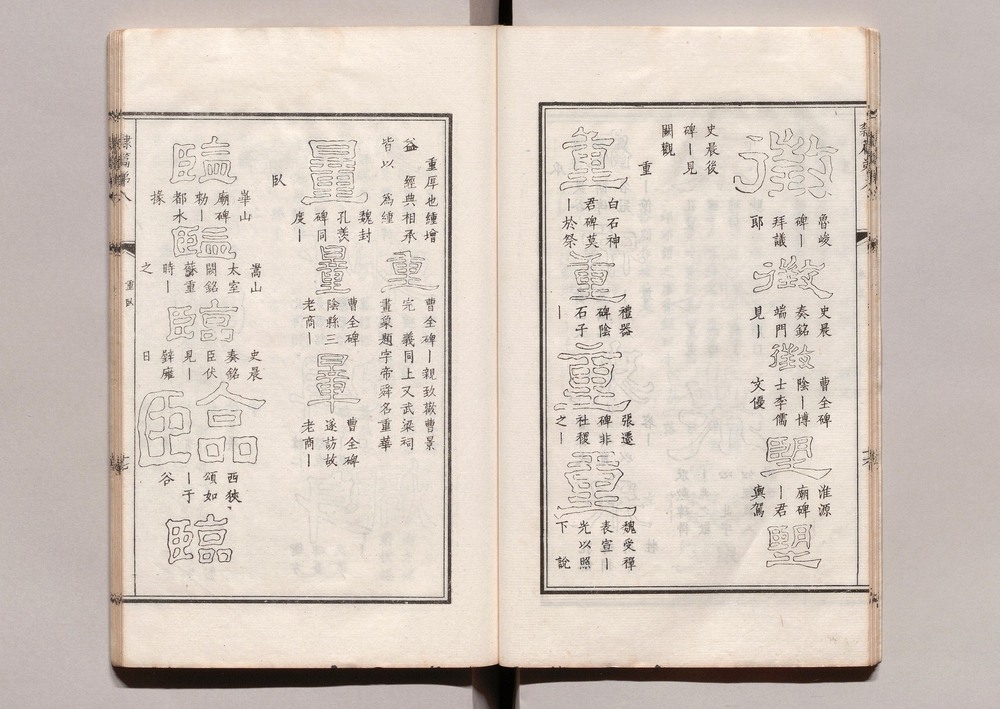 徵
魯峻
碑丨
拜議
郎
徵
史晨
奏銘
端門
見丨
徵
曹全碑
陰丨博
士李儒
文優
朢
淮源
廟碑
丨君
輿駕
朢
史晨後
碑丨見
闕觀
重
重
白石神
君碑莫
丨於祭
重
禮器
碑陰
石子
丨
重
張遷
碑非
社稷
之丨
重
魏受禪
表宣丨
光以照
下 說
重厚也緟增
益 經典相承
皆以 為緟
重
曹全碑丨親致歡曹景
完 義同上又武梁祠
畫象題字帝舜名重華
量
魏封
孔羨
碑同
度丨
量
曹全碑
陰縣三
老商丨
量
曹全碑
遂訪故
老商丨
臥
臨
華山
廟碑
勑丨
都水
掾
臨
嵩山
太室
闕銘
蘇重
時丨
之
臨
史晨
奏銘
臣伏
見丨
璧廱
日
臨
西狹
頌如
丨于
谷
臨
隸篇第八
重臥
十七